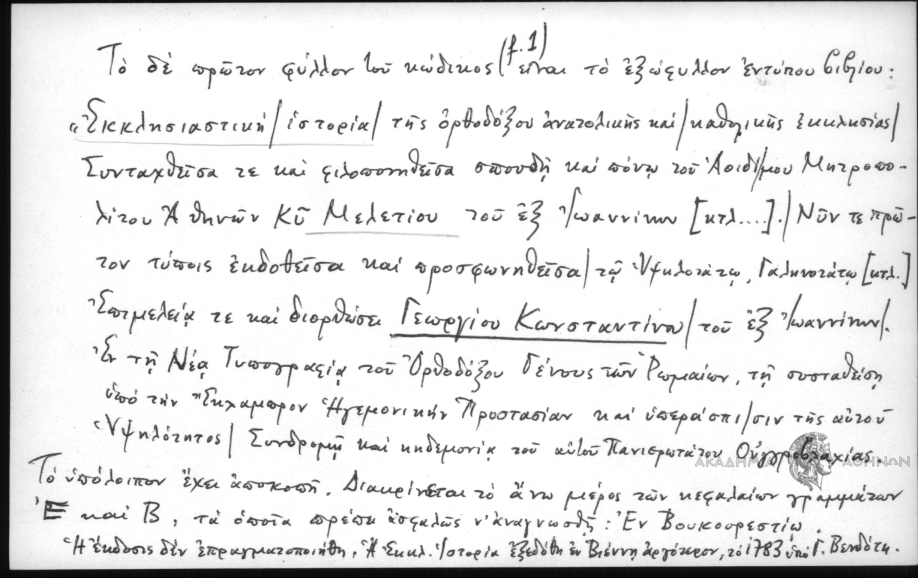 Τὸ δὲ πρῶτον φύλλον τοῦ κώδικος (f. 1) εἶναι τὸ ἐξώφυλλον ἐντύπου βιβλίου:
«Ἐκκλησιαστικὴ / ἱστορία / τῆς ὀρθοδόξου ἀνατολικῆς καὶ / καθολικῆς ἐκκλησίας /
Συνταχθεῖσα τε καὶ φιλοπονηθεῖσα σπουδῇ καὶ πόνῳ τοῦ Ἀοιδίμου Μητροπο-
λίτου Ἀθηνῶν Κῦ Μελετίου τοῦ ἐξ Ἰωαννίνων [κτλ....]. / Νῦν τε πρῶ-
τον τύποις ἐκδοθεῖσα καὶ προσφωνηθεῖσα / τῷ Ὑψηλοτάτῳ, Γαληνοτάτῳ [κτλ.]
Ἐπιμελείᾳ τε καὶ διορθώσει Γεωργίου Κωνσταντίνου / τοῦ ἐξ Ἰωαννίνων /.
Ἐν τῇ Νέᾳ Τυπογραφίᾳ τοῦ Ὀρθοδόξου Γένους τῶν Ῥωμαίων, τῇ συσταθείσῃ
ὑπὸ τὴν Ἡγεμονικὴν Προστασίαν καὶ ὑπεράσπισιν τῆς αὐτοῦ
Ὑψηλότητος / Συνδρομῇ καὶ κηδεμονίᾳ τοῦ Πανιερωτάτου Οὐγγροβλαχίας.
ΑΚΑΔΗΜΙΑ ΑΘΗΝΩΝ
Τὸ ὑπόλοιπον ἔχει ἀποκοπῆ. Διακρίνεται τὸ ἄνω μέρος τῶν κεφαλαίων γραμμάτων
Ἐ καὶ Β, τὰ ὁποῖα πρέπει ἀσφαλῶς ν' ἀναγνωσθῇ: Ἐν Βουκουρεστίῳ.
Ἡ ἔκδοσις δὲν ἐπραγματοποιήθη. Ἡ Ἐκκλ. Ἱστορία ἐξεδόθη ἐν Βιέννῃ ἀργότερον, τὸ 1783 ὑπὸ Γ. Βενδότη.